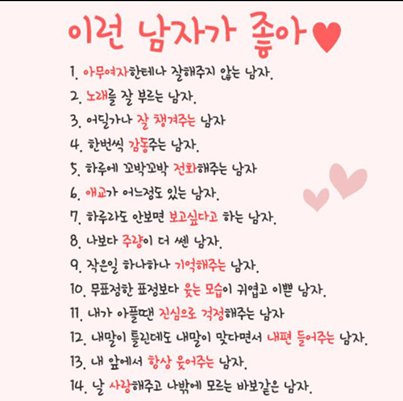 이런 남자가 좋아♥
1. 아무여자한테나 잘해주지 않는 남자.
2. 노래를 잘 부르는 남자.
3. 어딜가나 잘 챙겨주는 남자
4. 한번씩 감동주는 남자.
5. 하루에 꼬박꼬박 전화해주는 남자
6. 애교가 어느정도 있는 남자.
7. 하루라도 안보면 보고싶다고 하는 남자.
8. 나보다 주량이 더 쎈 남자.
9. 작은일 하나하나 기억해주는 남자.
10. 무표정한 표정보다 웃는 모습이 귀엽고 이쁜 남자.
11. 내가 아플땐 진심으로 걱정해주는 남자
12. 내말이 틀린데도 내말이 맞다면서 내편 들어주는 남자.
13. 내 앞에서 항상 웃어주는 남자.
14. 날 사랑해주고 나밖에 모르는 바보같은 남자.